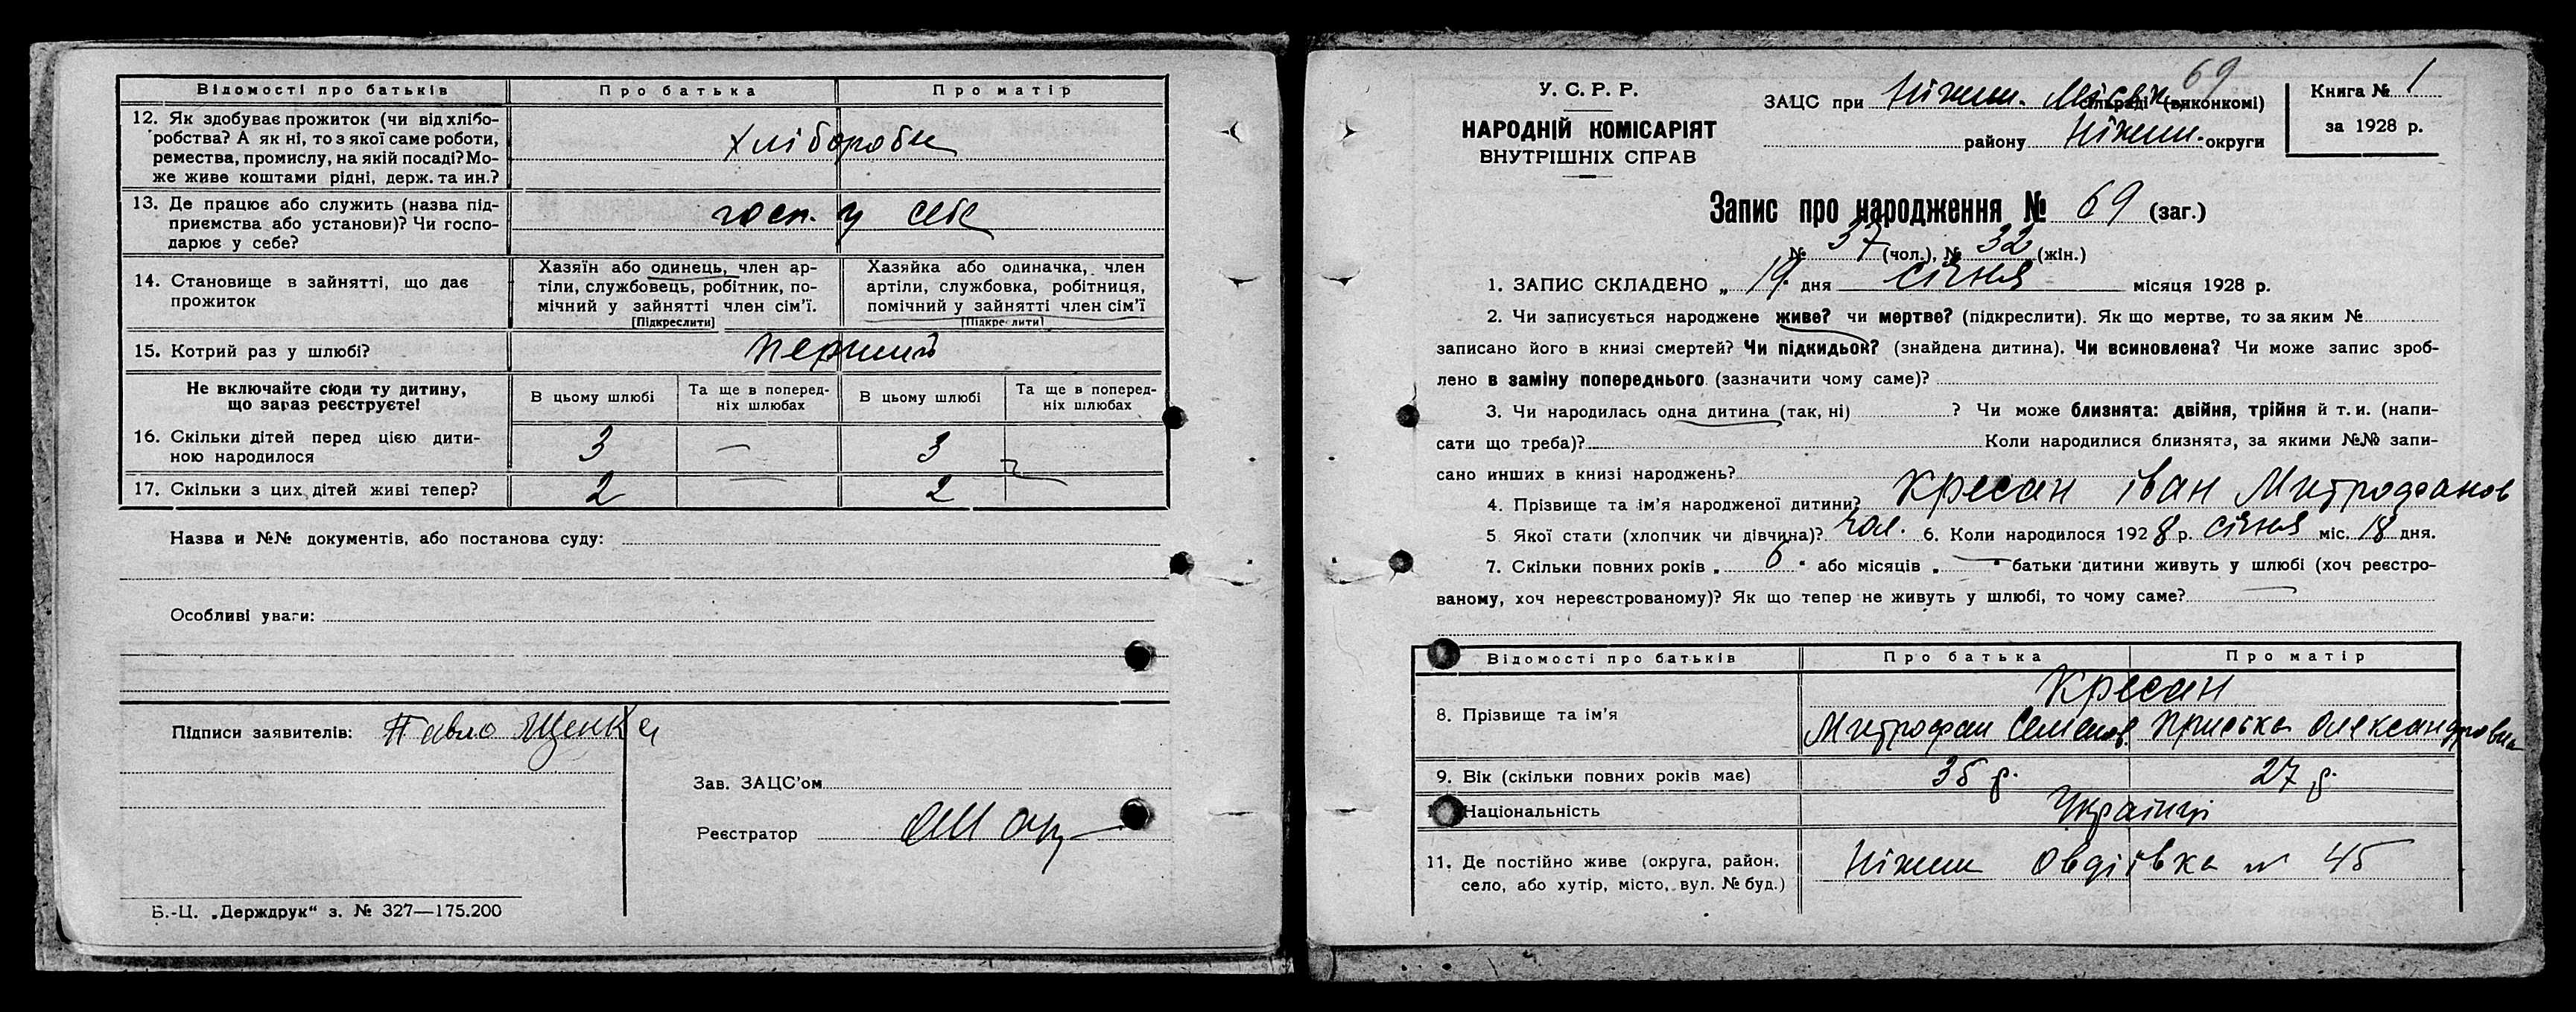 Відомості про батьків Про батька Про матір
12. Як здобуває прожиток (чи від хлібо-
робства? А як ні, то з якої саме роботи,
ремества, промислу, на якій посаді? Мо-
же живе коштами рідні, держ. та ин.?
хлібороби
13. Де працює або служить (назва під-
приємства або установи)? Чи госпо-
дарює у себе?
госп. у себе
14. Становище в зайнятті, що дає
прожиток
Хазяїн або одинець, член ар-
тіли, службовець, робітник, по-
мічний у зайнятті член сім'ї.
[Підкреслити]
Хазяйка або одиначка, член
артіли, службовка, робітниця,
помічний у зайнятті член сім'ї
[Підкреслити]
15. Котрий раз у шлюбі? перший
Не включайте сюди ту дитину,
що зараз реєструєте!
В цьому шлюбі
Та ще в поперед-
ніх шлюбах
В цьому шлюбі
Та ще в поперед-
ніх шлюбах
16. Скільки дітей перед цією дити-
ною народилося
3 — 3 —
17. Скільки з цих дітей живі тепер? 2 — 2 —
Назва и №№ документів, або постанова суду:
Особливі уваги:
Підписи заявителів: Павло
Зав. ЗАЦС'ом
Реєстратор
Б.-Ц. „Держдрук“ з. № 327—175.200
69
У. С. Р. Р.
НАРОДНІЙ КОМІСАРІЯТ
ВНУТРІШНІХ СПРАВ
ЗАЦС при Ніжин. Міськ (виконкомі)
району Ніжин. округи
Книга № 1
за 1928 р.
Запис про народження № 69 (заг.)
№ 37 (чол.), № 32 (жін.)
1. ЗАПИС СКЛАДЕНО „ 19 " дня січня місяця 1928 р.
2. Чи записується народжене живе? чи мертве? (підкреслити). Як що мертве, то за яким №
записано його в книзі смертей? Чи підкидьок? (знайдена дитина). Чи всиновлена? Чи може запис зроб-
лено в заміну попереднього (зазначити чому саме)?
3. Чи народилась одна дитина (так, ні) ? Чи може близнята: двійня, трійня й т. и. (напи-
сати що треба)? Коли народилися близнята, за якими №№ запи-
сано инших в книзі народжень?
4. Прізвище та ім'я народженої дитини? Кресан Іван Митрофанов
5. Якої стати (хлопчик чи дівчина)? чол. 6. Коли народилося 1928 р. січня міс. 18 дня.
7. Скільки повних років „ 6 " або місяців „ — " батьки дитини живуть у шлюбі (хоч реєстро-
ваному, хоч нереєстрованому)? Як що тепер не живуть у шлюбі, то чому саме? —
Відомості про батьків Про батька Про матір
8. Прізвище та ім'я
Кресан
Митрофан Семенов. Приська Олександровна
9. Вік (скільки повних років має) 35 р. 27 р.
Національність Українці
11. Де постійно живе (округа, район,
село, або хутір, місто, вул. № буд.)
Ніжин Овдіївка № 45